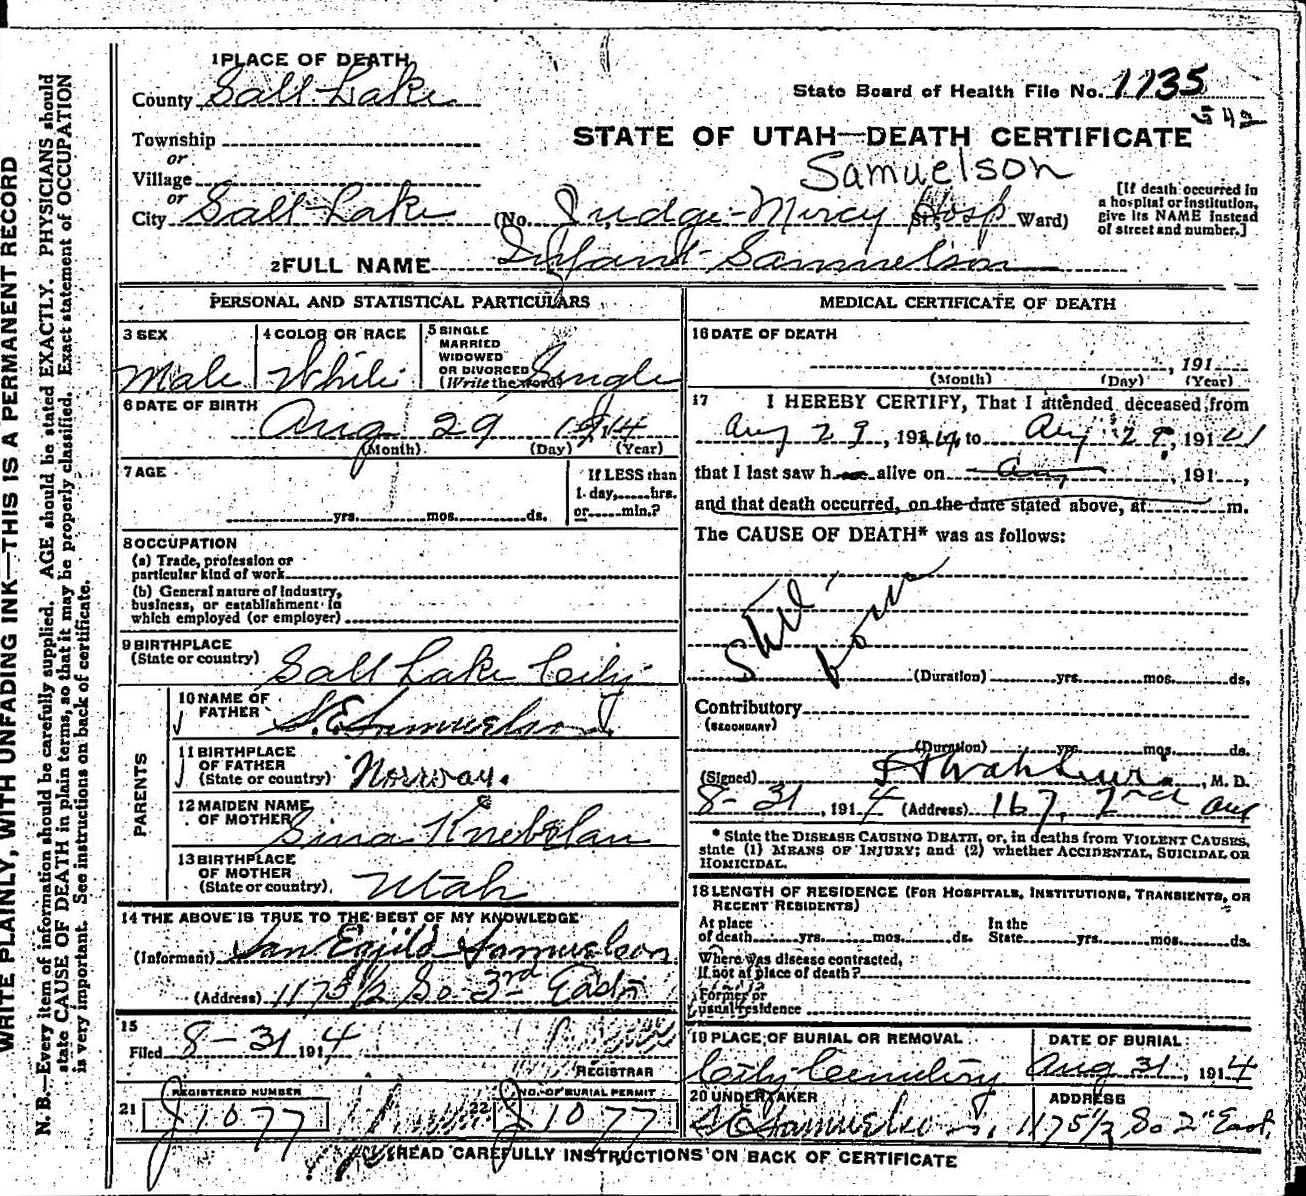 WRITE PLAINLY, WITH UNFADING INK—THIS IS A PERMANENT RECORD
N. B.—Every item of information should be carefully supplied. AGE should be stated EXACTLY. PHYSICIANS should
state CAUSE OF DEATH in plain terms, so that it may be properly classified. Exact statement of OCCUPATION
is very important. See instructions on back of certificate.
1 PLACE OF DEATH
County Salt Lake
State Board of Health File No. 1135
Township
STATE OF UTAH—DEATH CERTIFICATE
or
Village
Samuelson
or
City Salt Lake (No. Judge Mercy Hosp St., Ward)
[If death occurred in
a hospital or institution,
give its NAME instead
of street and number.]
2 FULL NAME Infant Samuelson
PERSONAL AND STATISTICAL PARTICULARS
3 SEX
Male
4 COLOR OR RACE
White
5 SINGLE
MARRIED
WIDOWED
OR DIVORCED
(Write the word)
Single
6 DATE OF BIRTH
Aug 29 1914
(Month) (Day) (Year)
7 AGE
yrs. mos. ds.
If LESS than
1 day, hrs.
or min.?
8 OCCUPATION
(a) Trade, profession or
particular kind of work
(b) General nature of industry,
business, or establishment in
which employed (or employer)
9 BIRTHPLACE
(State or country) Salt Lake City
PARENTS
10 NAME OF
FATHER S. E. Samuelson
11 BIRTHPLACE
OF FATHER
(State or country) Norway.
12 MAIDEN NAME
OF MOTHER Sina
13 BIRTHPLACE
OF MOTHER
(State or country) Utah
14 THE ABOVE IS TRUE TO THE BEST OF MY KNOWLEDGE
(Informant) Samuelson
(Address) 1175 1/2 So. 3rd East
15
Filed 8-31 1914
REGISTRAR
21 REGISTERED NUMBER
J 1077
22 NO. OF BURIAL PERMIT
J 1077
MEDICAL CERTIFICATE OF DEATH
16 DATE OF DEATH
, 191
(Month) (Day) (Year)
17 I HEREBY CERTIFY, That I attended deceased from
Aug 29, 1914, to Aug 29, 1914
that I last saw h alive on Aug, 191 ,
and that death occurred, on the date stated above, at m.
The CAUSE OF DEATH* was as follows:
Still
born
(Duration) yrs. mos. ds.
Contributory
(SECONDARY)
(Duration) yrs. mos. ds.
(Signed) , M. D.
8-31, 1914 (Address) 167, 2nd Ave
* State the DISEASE CAUSING DEATH, or, in deaths from VIOLENT CAUSES,
state (1) MEANS OF INJURY; and (2) whether ACCIDENTAL, SUICIDAL OR
HOMICIDAL.
18 LENGTH OF RESIDENCE (FOR HOSPITALS, INSTITUTIONS, TRANSIENTS, OR
RECENT RESIDENTS)
At place
of death yrs. mos. ds.
In the
State yrs. mos. ds.
Where was disease contracted,
If not at place of death?
Former or
usual residence
19 PLACE OF BURIAL OR REMOVAL
City Cemetery
DATE OF BURIAL
Aug 31, 1914
20 UNDERTAKER
S E Samuelson,
ADDRESS
1175 1/2 So 2nd East.
READ CAREFULLY INSTRUCTIONS ON BACK OF CERTIFICATE